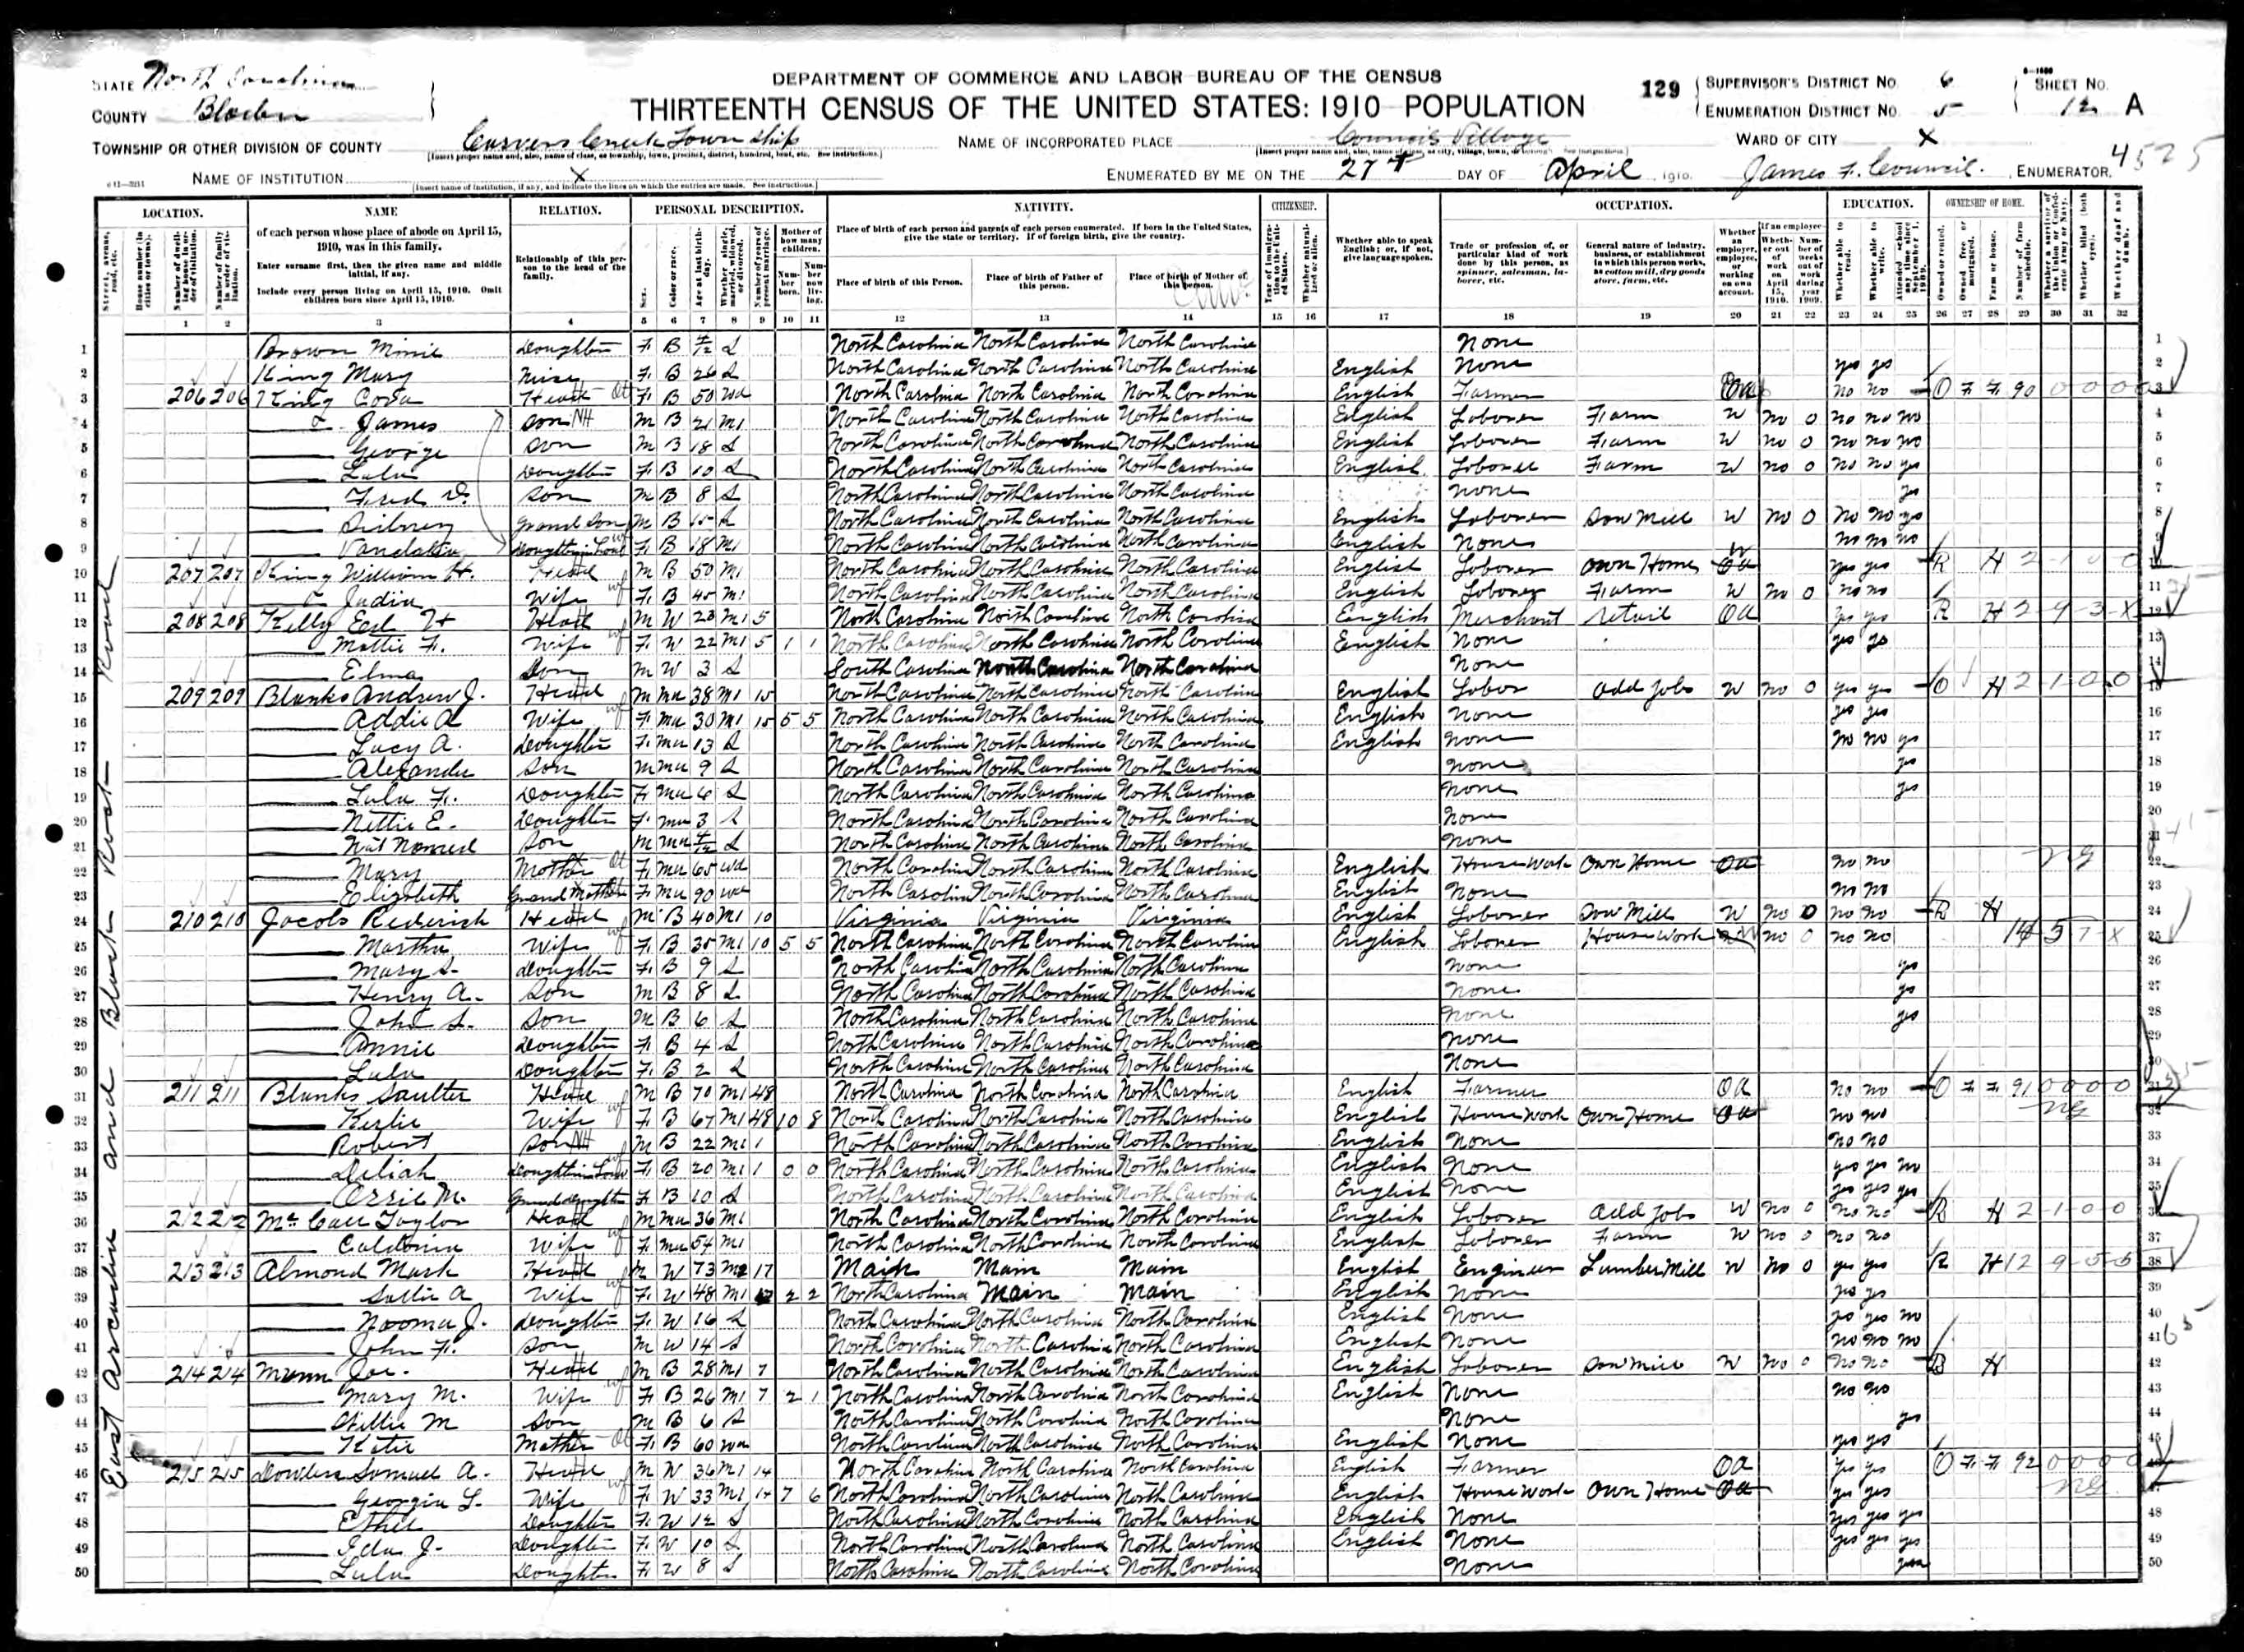 DEPARTMENT OF COMMERCE AND LABOR-BUREAU OF THE CENSUS
THIRTEENTH CENSUS OF THE UNITED STATES: 1910-POPULATION
STATE North Carolina
COUNTY Bladen
TOWNSHIP OR OTHER DIVISION OF COUNTY Carvers Creek Township
NAME OF INSTITUTION X
NAME OF INCORPORATED PLACE Council Village
ENUMERATED BY ME ON THE 27th DAY OF April, 1910.
James F. Council. ENUMERATOR.
4525
129
SUPERVISOR'S DISTRICT NO. 6
ENUMERATION DISTRICT NO. 5
SHEET NO. 12 A
WARD OF CITY X
LOCATION. NAME RELATION. PERSONAL DESCRIPTION. NATIVITY. CITIZENSHIP. OCCUPATION. EDUCATION. OWNERSHIP OF HOME.
of each person whose place of abode on April 15, 1910, was in this family.
Enter surname first, then the given name and middle initial, if any.
Include every person living on April 15, 1910. Omit children born since April 15, 1910.
Relationship of this person to the head of the family.
Place of birth of each person and parents of each person enumerated. If born in the United States, give the state or territory. If of foreign birth, give the country.
Place of birth of this Person. Place of birth of Father of this person. Place of birth of Mother of this person.
Whether able to speak English; or, if not, give language spoken.
Trade or profession of, or particular kind of work done by this person, as spinner, salesman, laborer, etc.
General nature of industry, business, or establishment in which this person works, as cotton mill, dry goods store, farm, etc.
1 2 3 4 5 6 7 8 9 10 11 12 13 14 15 16 17 18 19 20 21 22 23 24 25 26 27 28 29 30 31 32
1 Brown Doughter F B S North Carolina North Carolina North Carolina None
2 King Mary F B 26 S North Carolina North Carolina North Carolina English None yes yes
3 206 206 King Cora Head F B 50 Wd North Carolina North Carolina North Carolina English Farmer Oa no no O F F 90 0 0 0 0
4 James Son M B 21 M1 North Carolina North Carolina North Carolina English Laborer Farm W no 0 no no no
5 George Son M B 18 S North Carolina North Carolina North Carolina English Laborer Farm W no 0 no no no
6 Lula Doughter F B 10 S North Carolina North Carolina North Carolina English Laborer Farm W no 0 no no yes
7 Fred D. Son M B 8 S North Carolina North Carolina North Carolina none yes
8 Sidney Grand Son M B 15 S North Carolina North Carolina North Carolina English Laborer Saw Mill W no 0 no no yes
9 Doughter in Law F B 18 M1 North Carolina North Carolina North Carolina English None no no no
10 207 207 King William H. Head M B 50 M1 North Carolina North Carolina North Carolina English Laborer Own Home yes yes R H 2 1 0 0
11 Judia Wife F B 45 M1 North Carolina North Carolina North Carolina English Laborer Farm W no 0 no no
12 208 208 Kelly Earl H Head M W 23 M1 5 North Carolina North Carolina North Carolina English Merchant retail Oa yes yes R H 2 9 3 X
13 Mattie F. Wife F W 22 M1 5 1 1 North Carolina North Carolina North Carolina English None yes yes
14 Elma Son M W 3 S South Carolina North Carolina North Carolina None
15 209 209 Blanks Andrew J. Head M Mu 38 M1 15 North Carolina North Carolina North Carolina English Labor Odd Jobs W no 0 yes yes O H 2 1 0 0
16 Addie A Wife F Mu 30 M1 15 5 5 North Carolina North Carolina North Carolina English None yes yes
17 Lucy A. Doughter F Mu 13 S North Carolina North Carolina North Carolina English none no no yes
18 Alexander Son M Mu 9 S North Carolina North Carolina North Carolina none yes
19 Lula F. Doughter F Mu 6 S North Carolina North Carolina North Carolina none yes
20 Nettie E. Doughter F Mu 3 S North Carolina North Carolina North Carolina none
21 Not Named Son M Mu S North Carolina North Carolina North Carolina none
22 Mary Mother F Mu 65 Wd North Carolina North Carolina North Carolina English House Work Own Home Oa no no
23 Elizabeth Grand Mother F Mu 90 Wd North Carolina North Carolina North Carolina English None no no
24 210 210 Jacobs Rederick Head M B 40 M1 10 Virginia Virginia Virginia English Laborer Saw Mill W no 0 no no R H
25 Martha Wife F B 35 M1 10 5 5 North Carolina North Carolina North Carolina English Laborer House Work no 0 no no
26 Mary S. Doughter F B 9 S North Carolina North Carolina North Carolina none yes
27 Henry A. Son M B 8 S North Carolina North Carolina North Carolina none yes
28 John S. Son M B 6 S North Carolina North Carolina North Carolina none yes
29 Annie Doughter F B 4 S North Carolina North Carolina North Carolina none
30 Lula Doughter F B 2 S North Carolina North Carolina North Carolina None
31 211 211 Blanks Saulter Head M B 70 M1 48 North Carolina North Carolina North Carolina English Farmer Oa no no O F F 91 0 0 0 0
32 Wife F B 67 M1 48 10 8 North Carolina North Carolina North Carolina English House Work Own Home Oa no no
33 Robert Son M B 22 M1 1 North Carolina North Carolina North Carolina English None no no
34 Deliah Doughter in Law F B 20 M1 1 0 0 North Carolina North Carolina North Carolina English None yes yes no
35 Orrie M. Grand doughter F B 10 S North Carolina North Carolina North Carolina English None yes yes yes
36 212 212 McCall Taylor Head M Mu 36 M1 North Carolina North Carolina North Carolina English Laborer Odd Jobs W no 0 no no R H 2 1 0 0
37 Caldonia Wife F Mu 54 M1 North Carolina North Carolina North Carolina English Laborer Farm W no 0 no no
38 213 213 Almond Mark Head M W 73 M2 17 Main Main Main English Engineer Lumber Mill W no 0 yes yes R H
39 Sallie A Wife F W 48 M1 17 2 2 North Carolina Main Main English None yes yes
40 Nooma J. Doughter F W 16 S North Carolina North Carolina North Carolina English None yes yes no
41 John F. Son M W 14 S North Carolina North Carolina North Carolina English None no no no
42 214 214 Munn Joe. Head M B 28 M1 7 North Carolina North Carolina North Carolina English Laborer Saw Mill W no 0 no no R H
43 Mary M. Wife F B 26 M1 7 2 1 North Carolina North Carolina North Carolina English None no no
44 Willie M Son M B 6 S North Carolina North Carolina North Carolina None yes
45 Katie Mother F B 60 Wd North Carolina North Carolina North Carolina English None yes yes
46 215 215 Samuel A. Head M W 36 M1 14 North Carolina North Carolina North Carolina English Farmer Oa yes yes O F F 92 0 0 0 0
47 Georgia L. Wife F W 33 M1 14 7 6 North Carolina North Carolina North Carolina English House Work Own Home Oa yes yes
48 Ethel Doughter F W 12 S North Carolina North Carolina North Carolina English None yes yes yes
49 Ida J. Doughter F W 10 S North Carolina North Carolina North Carolina English None yes yes yes
50 Lula Doughter F W 8 S North Carolina North Carolina North Carolina None
East Arcadia and Black Rock Road